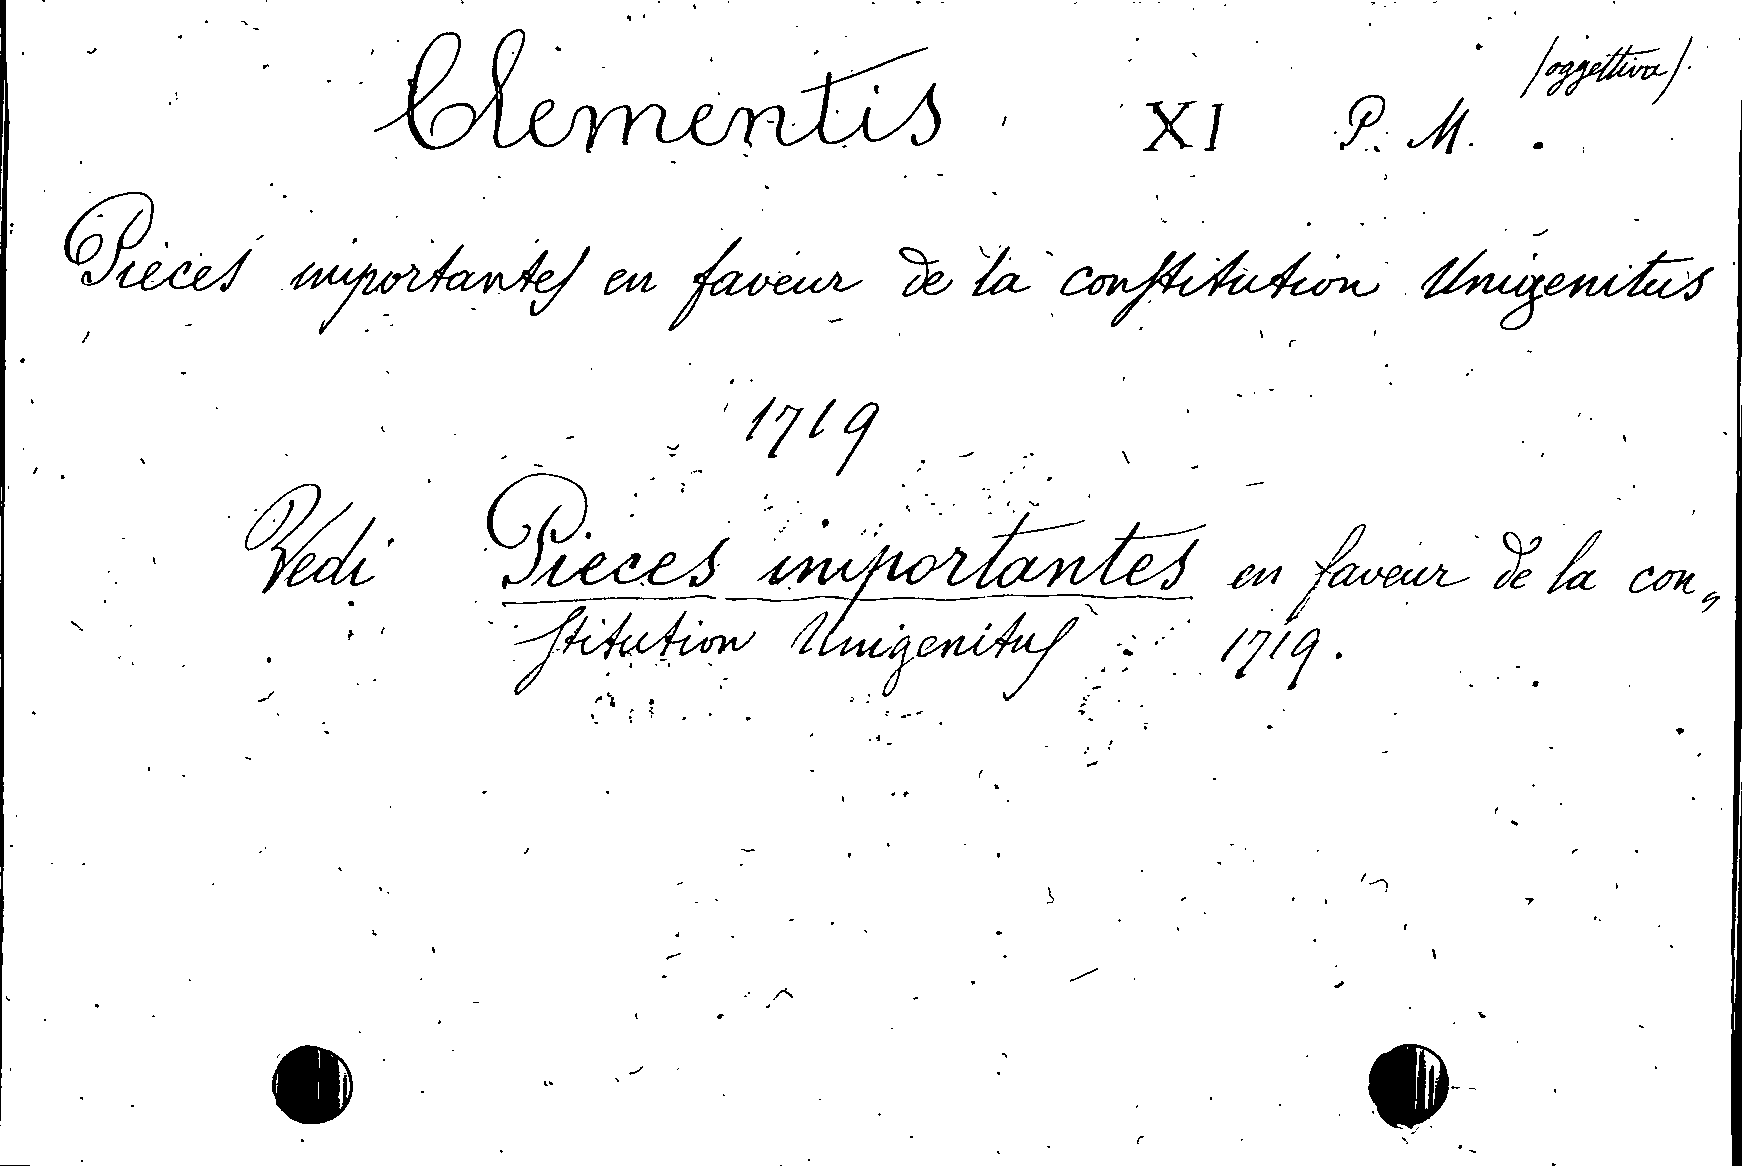 Clementis XI P. M. (oggettiva).
Pieces importantes en faveur de la constitution Unigenitus
1719
Vedi Pieces importantes en faveur de la con„
stitution Unigenitus 1719.